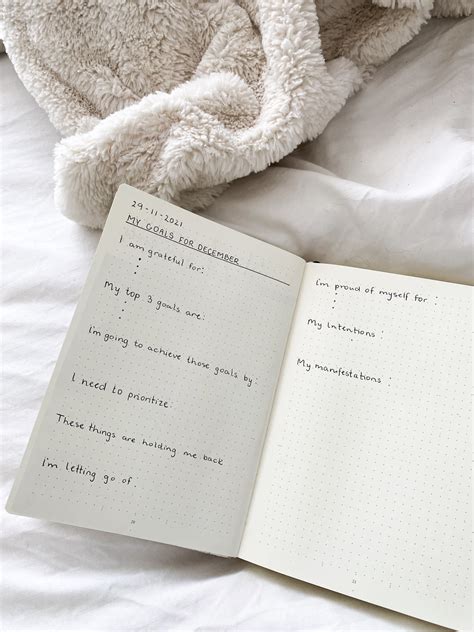 29-11-2021
MY GOALS FOR DECEMBER
I am grateful for:
My top 3 goals are:
I'm going to achieve those goals by:
I need to prioritize:
These things are holding me back
I'm letting go of:
I'm proud of myself for :
My Intentions :
My manifestations :